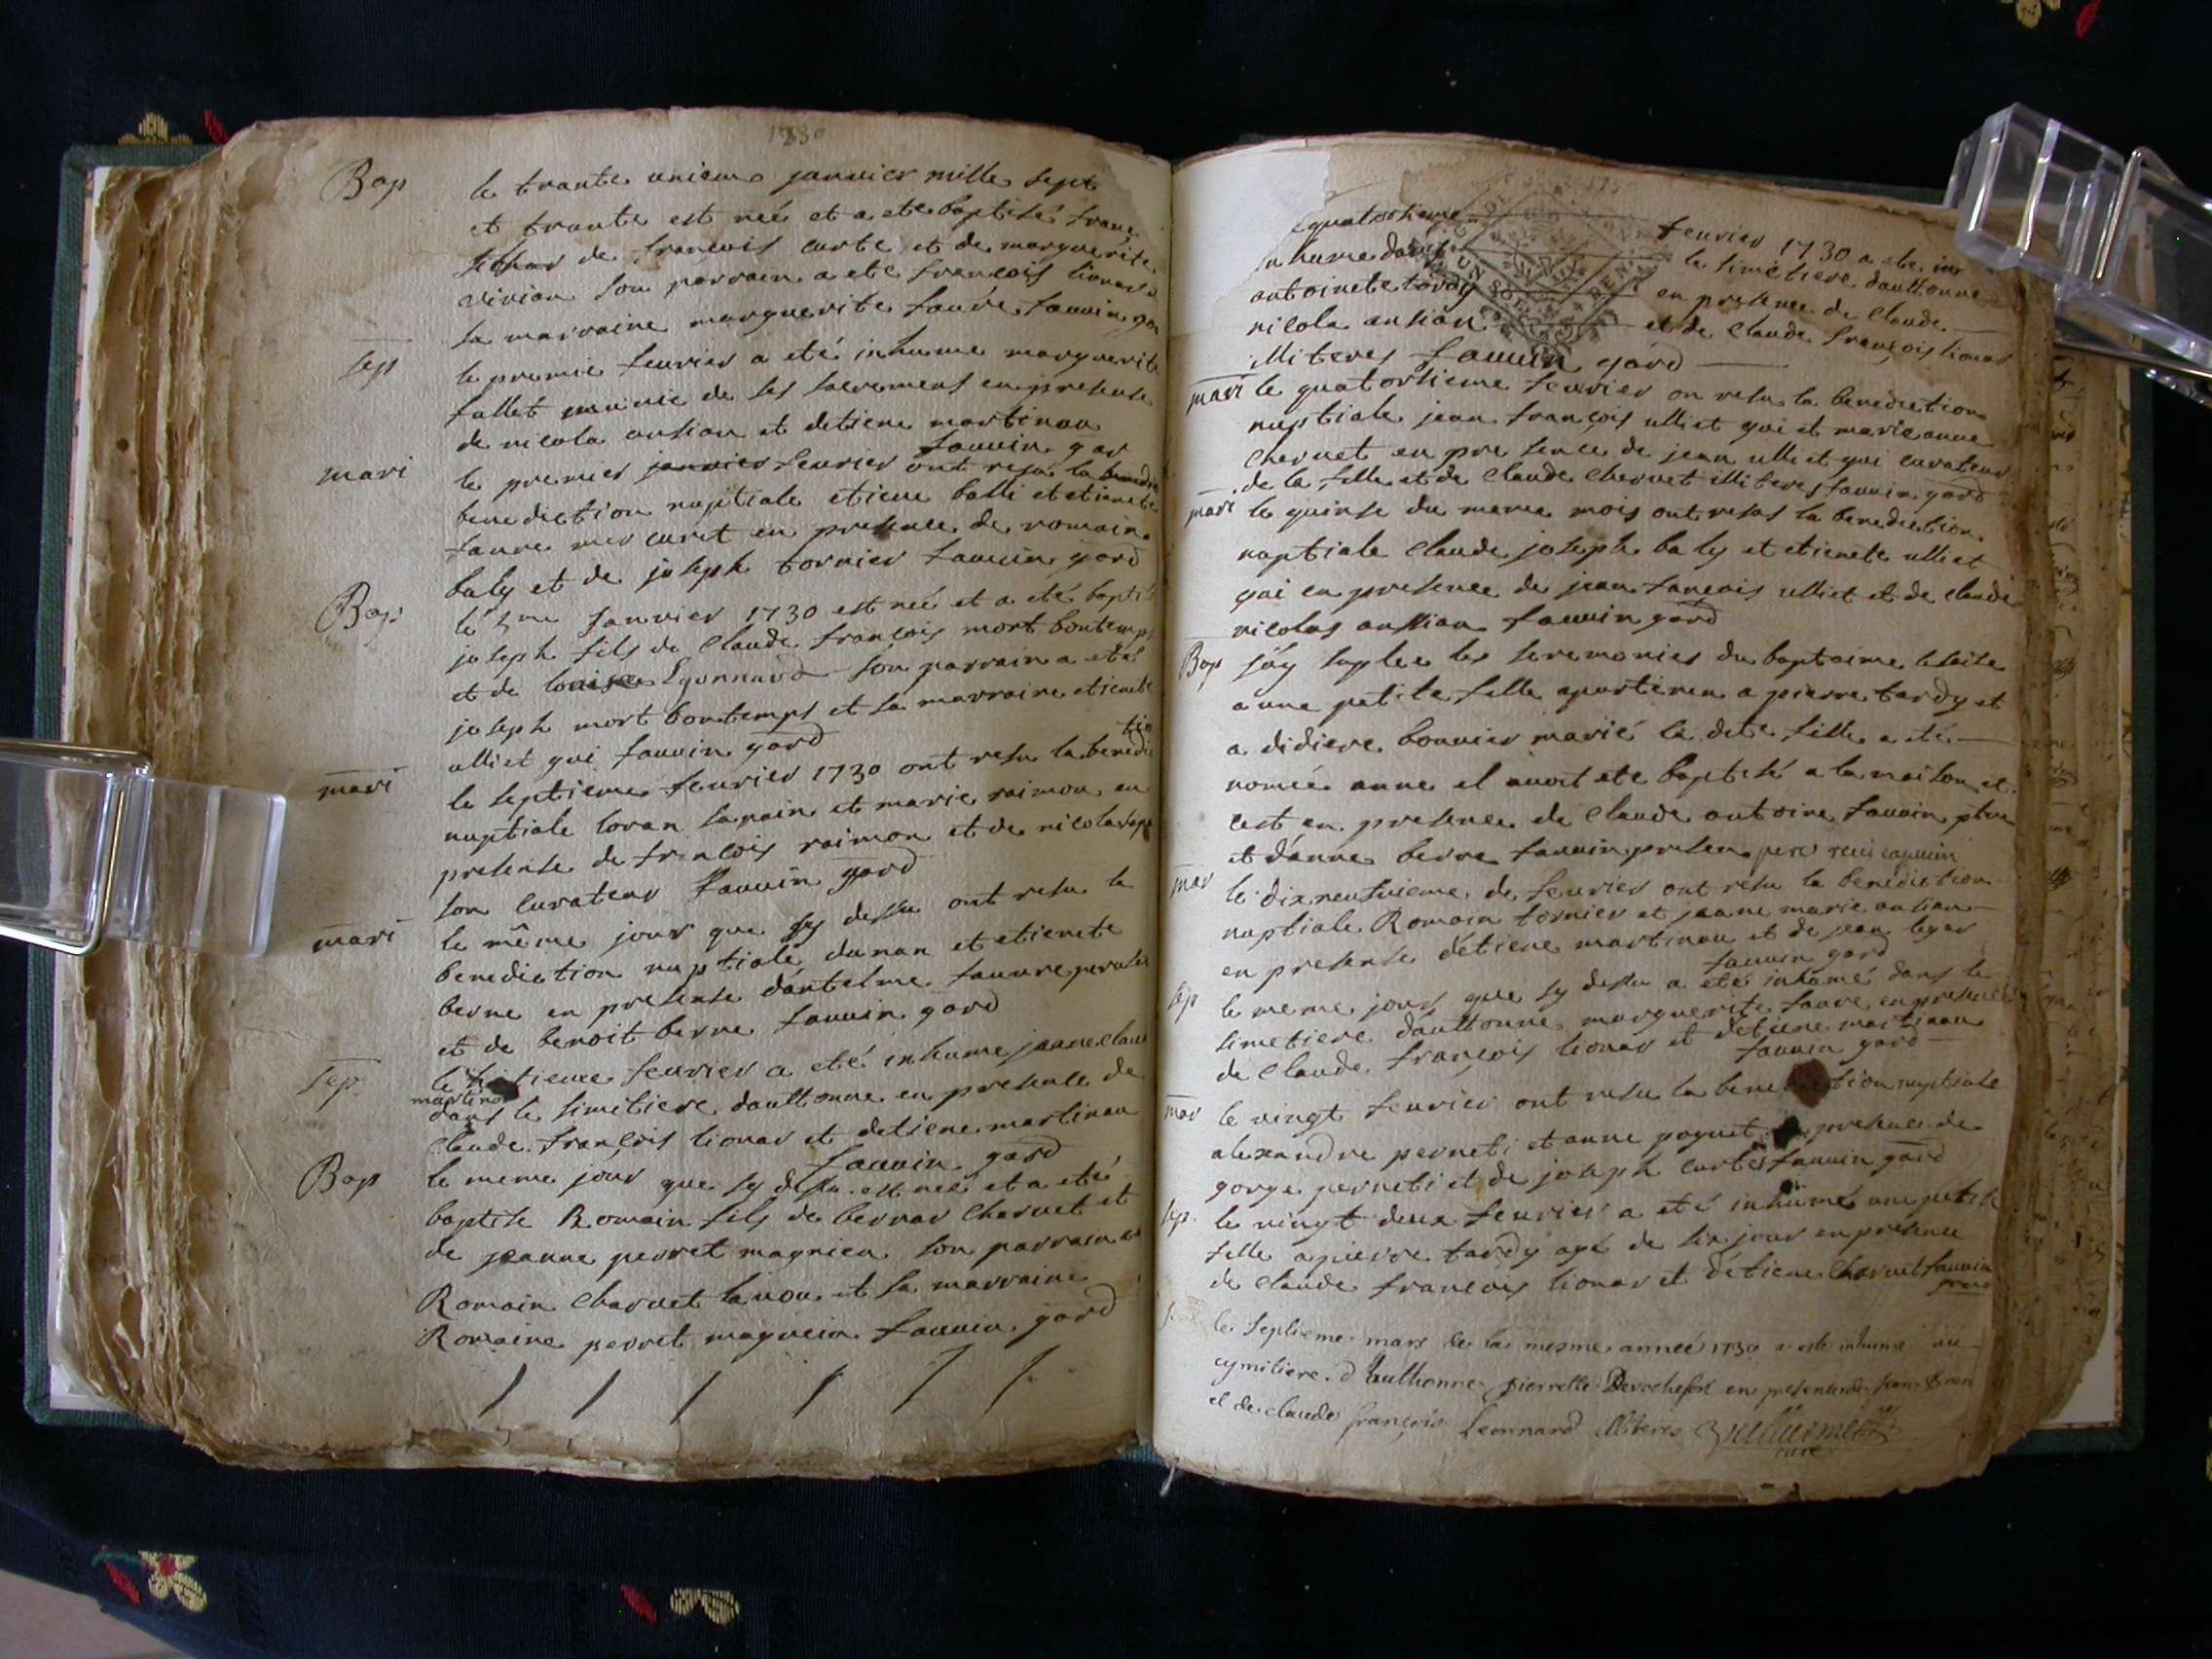 1730
Bap
le trante unieme janvier mille sept
et trante est neé et a ete baptisé franc
de françois curte et de marguerite
vivian son parrain a ete françois lionard
sa marraine marguerite faure fauvin gar
sep
le premie feuvrier a eté inhume marguerite
fallet munie de ses sacremens en presense
de nicola ansian et detiene martinau
fauvin gar
mari
le premier janvier feuvrier ont resu la
benediction nuptiale etiene balli et etienete
faure mercuret en presence de romain
baly et de joseph tornier fauvin gard
Bap:
le me Janvier 1730 est neé et a eté baptisé
joseph fils de Claude françois mort bontemps
et de louise Lyonnard son parrain a eté
joseph mort bontemps et sa marraine etienete
ulliet gui fauvin gard
tio
mari
le septieme feuvrier 1730 ont resu la benedic
nuptiale loran sapain et marie raimon en
presense de françois raimon et de nicola sapa
son curateur fauvin gard
mari
le même jour que sy dessu ont resu la
benediction nuptiale dunan et etienete
berne en presense dantelme fauvre
et de benoit berne fauvin gard
sep.
le huitieme feuvrier a eté inhume jeane claude
martinau
dans le simitiere daultonne en presence de
claude françois lionar et detiene martinau
fauvin gard
Bap
le meme jour que sy dessu est neé et a eté
baptise Romain fils de bernar Charvet et
de jeanne perret magnien son parrain a
Romain Charvet lanou et sa marraine
Romaine perret magnein fauvin gard
quatorsieme feuvrier 1730 a ete in
inhume dans le simetiere daultonne
antoinete tardy en presence de Claude
nicola ansian et de Claude françois lionar
illiteres fauvin gard
mari
le quatorsieme feuvrier on resu la benediction
nuptiale jean françois ulliet gui et marie anne
Chervet en pre sence de jean ulliet gui curateur
de la fille et de Claude Chervet illiteres fauvin gard
mari
le quinse du meme mois ont resus la benediction
nuptiale Claude joseph baly et etienete ulliet
gui en presence de jean françois ulliet et de claude
nicolas anssian fauvin gard
Bap
jáy suplee les seremonies du baptaime
a une petite fille apartenen a pierre tardy et
a didiere bonnier marié la dete fille a eté
nomeé anne el avoit ete baptisé a la maison
cest en presence de Claude antoine fauvin ptre
et danne berne fauvin presen
mar
le dixneufvieme de feuvrier ont resu la benediction
nuptiale Romain tornier et jeane marie ansian
en presense detiene martinau et de jean legar
fauvin gard
sep
le meme jour que sy dessu a eté inhumé dans le
simetiere daultonne marguerite faure en presence
de Claude françois lionar et detiene martinau
fauvin gard
mar
le vingt feuvrier ont resu la benediction nuptiale
alexandre perneti et anne poguet presence de
gorge perneti et de joseph curtes fauvin gard
sep.
le vingt deux feuvrier a eté inhumé une petite
fille a pierre tardy agé de six jour en presence
de Claude françois lionar et detiene Charvet fauvin
gard
le septieme mars de la mesme anneé 1730 a esté inhumé au
cymitiere d hulthonne pierrette Derochefort en presence de
et de claude françois Leonnard illiteres
curé